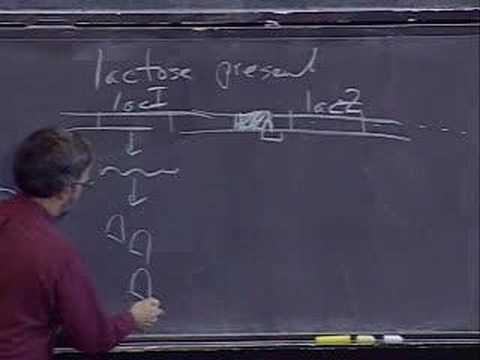 lactose present
lacI lacZ